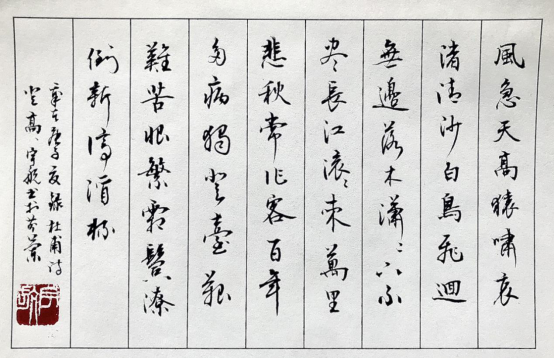 風急天高猿嘯哀
渚清沙白鳥飛迴
無邊落木瀟〻下不
盡長江滾〻來萬里
悲秋常作客百年
多病獨登臺艱
難苦恨繁霜鬢潦
倒新停酒杯
辛丑夏錄杜甫詩
登高宇航书於